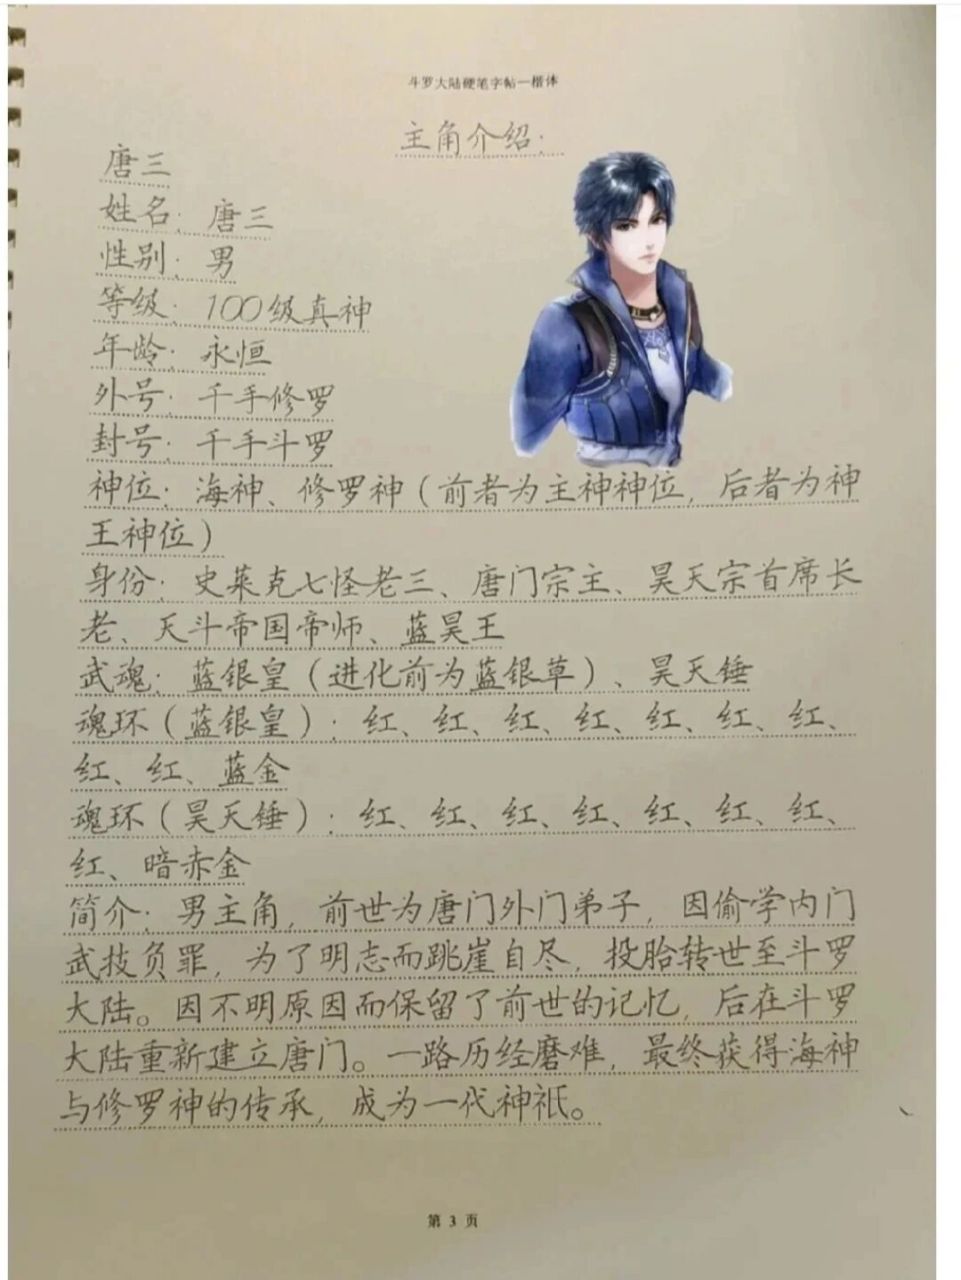 斗罗大陆硬笔字帖—楷体
主角介绍：
唐三
姓名：唐三
性别：男
等级：100级真神
年龄：永恒
外号：千手修罗
封号：千手斗罗
神位：海神、修罗神（前者为主神神位，后者为神
王神位）
身份：史莱克七怪老三、唐门宗主、昊天宗首席长
老、天斗帝国帝师、蓝昊王
武魂：蓝银皇（进化前为蓝银草）、昊天锤
魂环（蓝银皇）：红、红、红、红、红、红、红、
红、红、蓝金
魂环（昊天锤）：红、红、红、红、红、红、红、
红、暗赤金
简介：男主角，前世为唐门外门弟子，因偷学内门
武技负罪，为了明志而跳崖自尽，投胎转世至斗罗
大陆。因不明原因而保留了前世的记忆，后在斗罗
大陆重新建立唐门。一路历经磨难，最终获得海神
与修罗神的传承，成为一代神祇。
第 3 页